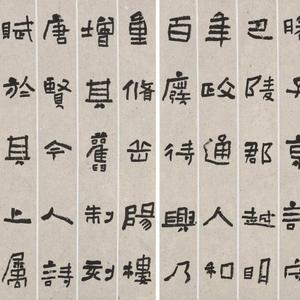 子京謫守
巴陵郡越明
年政通人和
百廢待興乃
重脩岳陽樓
增其舊制刻
唐賢今人詩
賦於其上屬